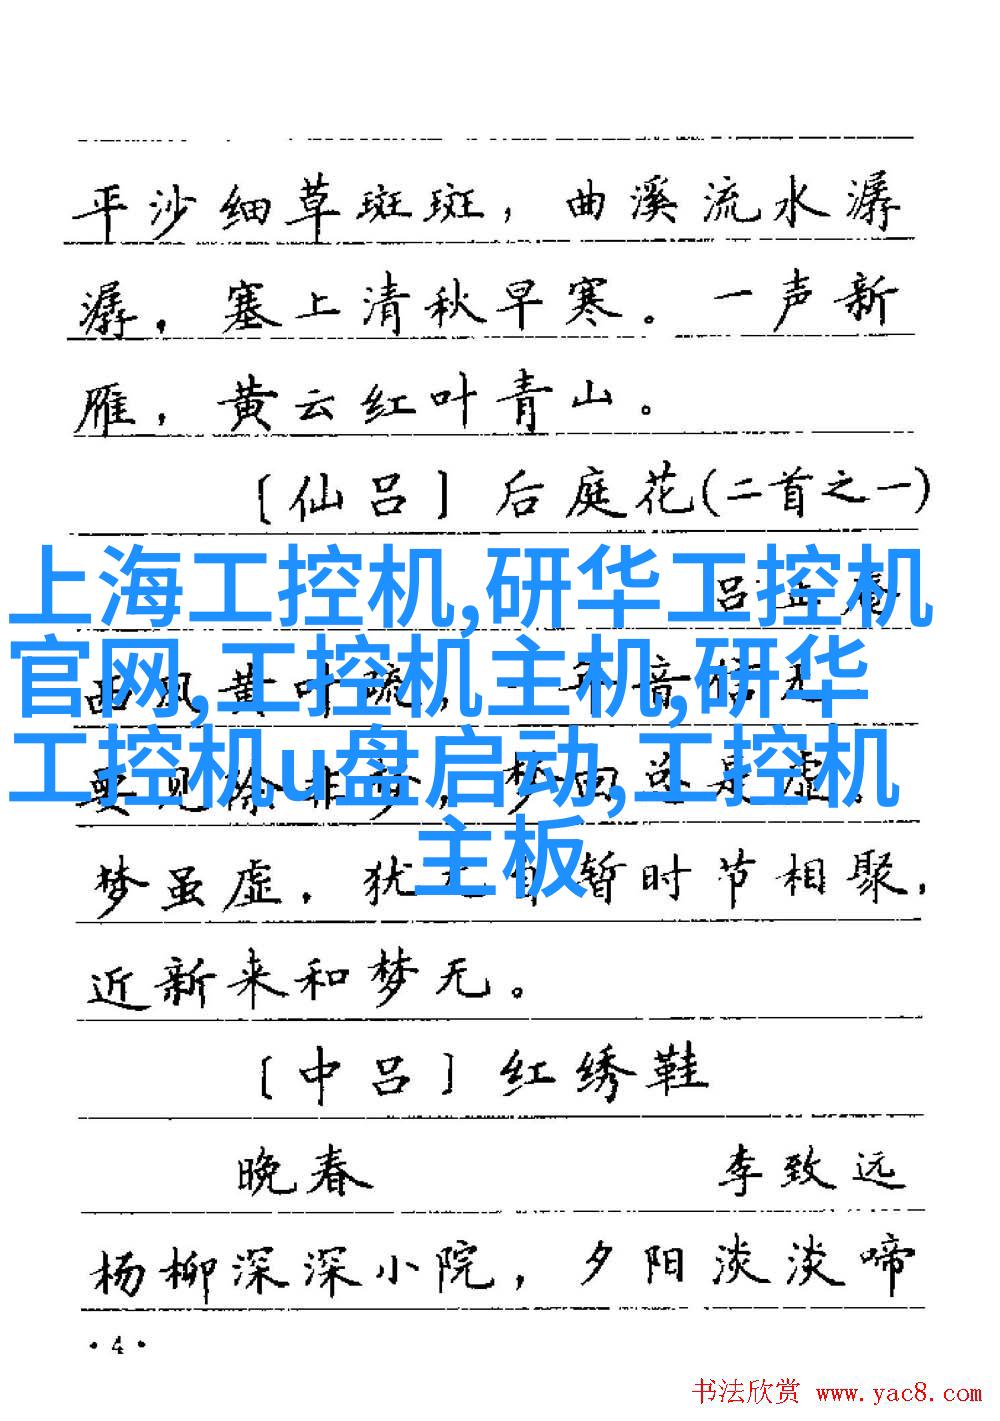 平沙细草斑斑，曲溪流水潺
潺，塞上清秋早寒。一声新
雁，黄云红叶青山。
〔仙吕〕后庭花(二首之一)
上海工控机,研华工控机
吕止庵
官网,工控机主机,研华
西风黄叶疏，一年音信无
工控机u盘启动,工控机
要见除非梦，梦回还是虚。
主板
梦虽虚，犹兀自暂时节相聚，
近新来和梦无。
〔中吕〕红绣鞋
晚春 李致远
杨柳深深小院，夕阳淡淡啼
·4·
书法欣赏 www.yac8.com